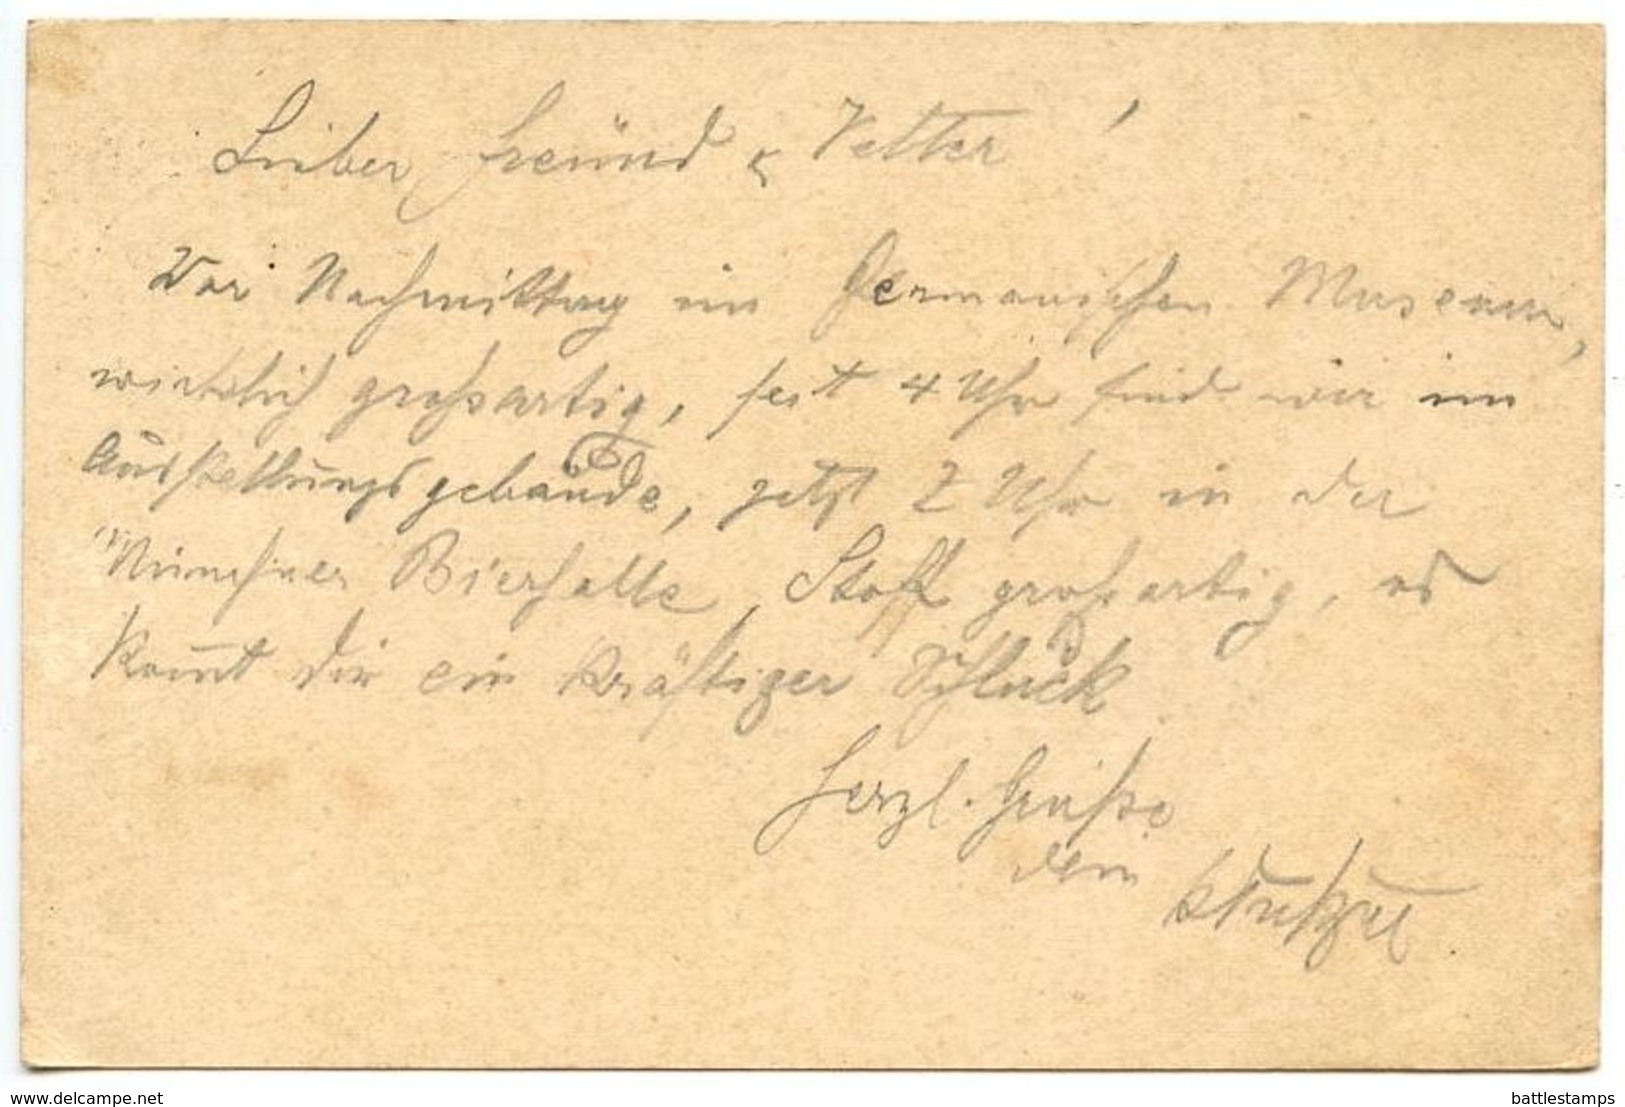 Lieber Freund & Vetter!
War Nachmittag im Germanischen Museum,
wirklich großartig, seit 4 Uhr sind wir im
Ausstellungsgebäude, jetzt 7 Uhr in der
Münchner Bierhalle, Stoff großartig, es
kom̅t dir ein kräftiger Schluck
Herzl. Grüße
dein
www.delcampe.net
battlestamps